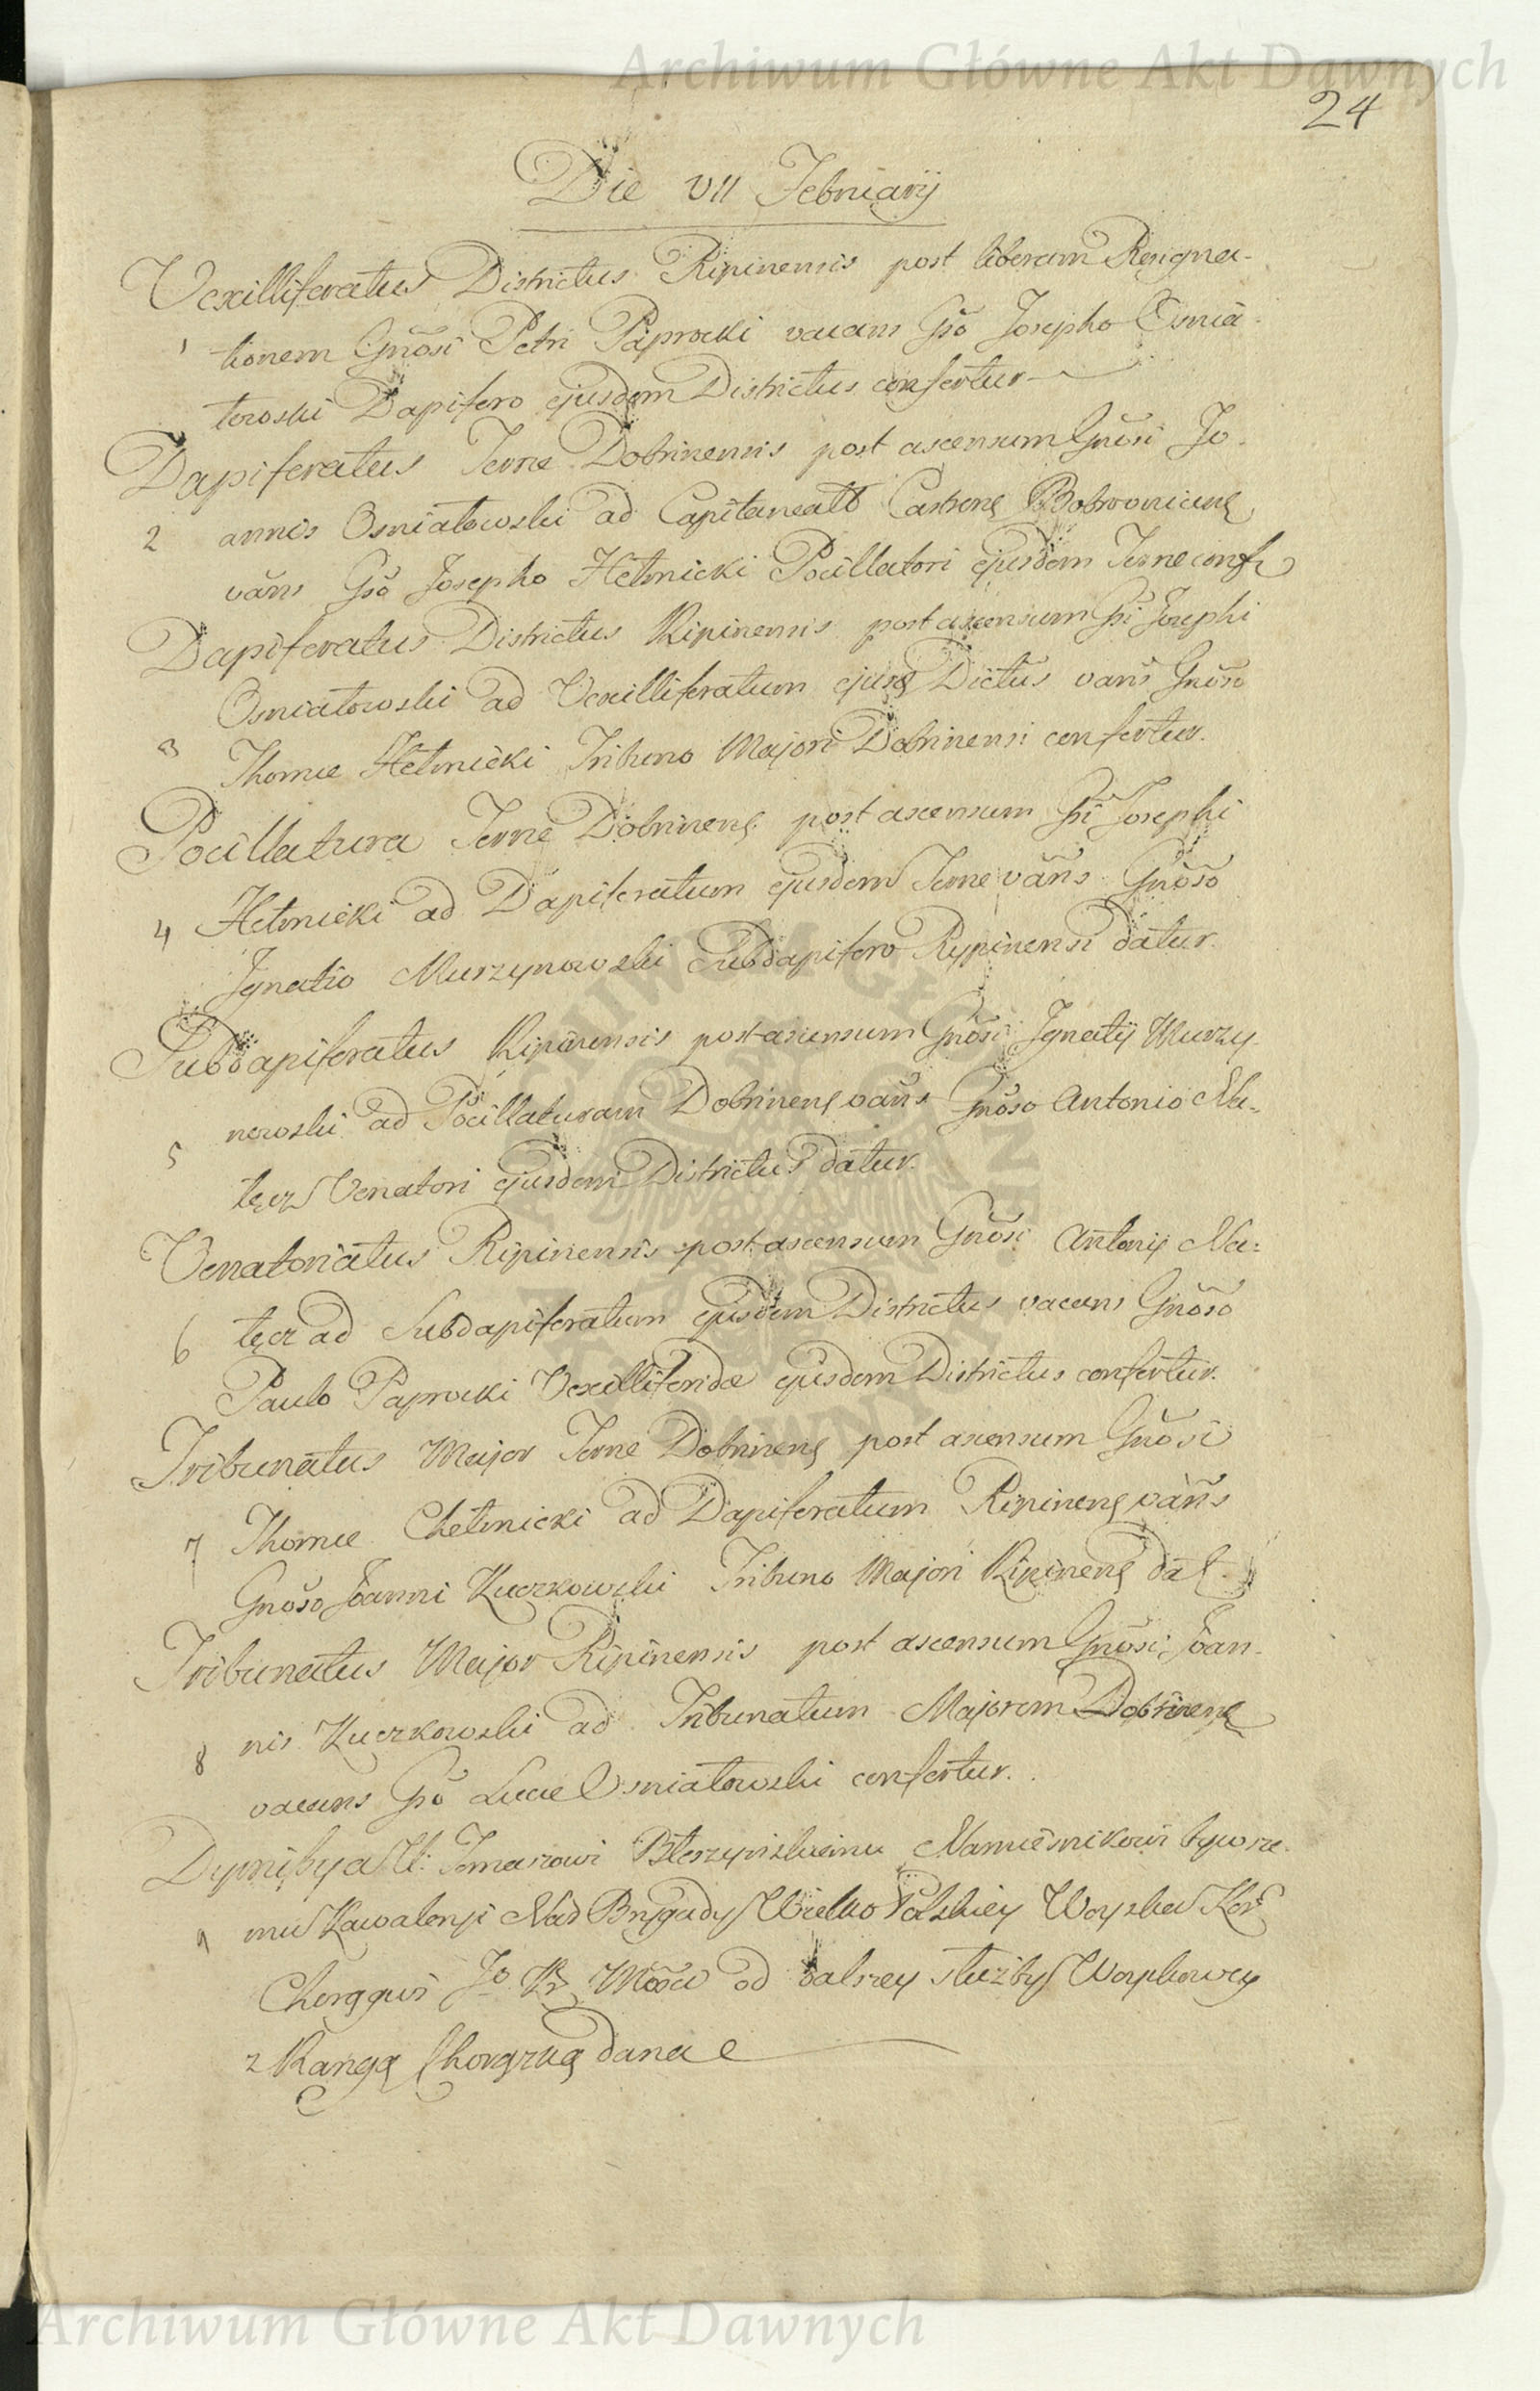 Archiwum Główne Akt Dawnych
24
Die VII Februarij
Vexilliferatus Districtus Ripinensis post liberam Resigna-
1 tionem Gnõsi Petri Paprocki vacans Gsõ Josepho Osnia-
towski Dapifero ejusdem Districtus confertur
Dapiferatus Terræ Dobrinensis post ascensum Gnõsi Jo-
2 annis Osniatowski ad Capitaneatũ Castrens Bobrovnicens
vãns Gsõ Josepho Hełmicki Pocillatori ejusdem Terræ conf
Dapiferatus Districtus Ripinensis post ascensum Gsi Josephi
Osniatowski ad Vexilliferatum ejusd Dictus vañs Gnõso
3 Thomæ Hełmicki Tribuno Majori Dobrinensi confertur.
Pocillatura Terræ Dobrinens post ascensum Gsi Josephi
4 Hełmicki ad Dapiferatum ejusdem Terræ vãns Gnõso
Ignatio Murzynowski Subdapifero Rypinensi datur.
Subdapiferatus Ripinensis post ascensum Gnõsi Ignatij Murzy-
5 nowski ad Pocillaturam Dobrinens vañs Gnõso Antonio Na-
tęcz Venatori ejusdem Districtus datur.
Venatoriatus Ripinensis post ascensum Gnõsi Antonij Na=
6 tęcz ad Subdapiferatum ejusdem Districtus vacans Gnõso
Paulo Paprocki Vexilliferidæ ejusdem Districtus confertur.
Tribunatus Major Terræ Dobrinens post ascensum Gnõsi
7 Thomæ Chełmicki ad Dapiferatum Ripinens vãñs
Gnõso Joanni Kuczkowski Tribuno Majori Ripinens dat
Tribunatus Major Ripinensis post ascensum Gnõsi Joan-
8 nis Kuczkowski ad Tribunatum Majorem Dobrinens
vacans Gsõ Lucæ Osniatowski confertur.
Dymissya Ur: Tomaszowi Namiesnikowi bywsze-
9 mu Kawaleryi Nad Brygady Wielko Polskiey Woyska Kor
Chorągwi Jo Kr Mõści od dalszey służby Woyskowey
z Rangą Chorążcą dana
Archiwum Główne Akt Dawnych